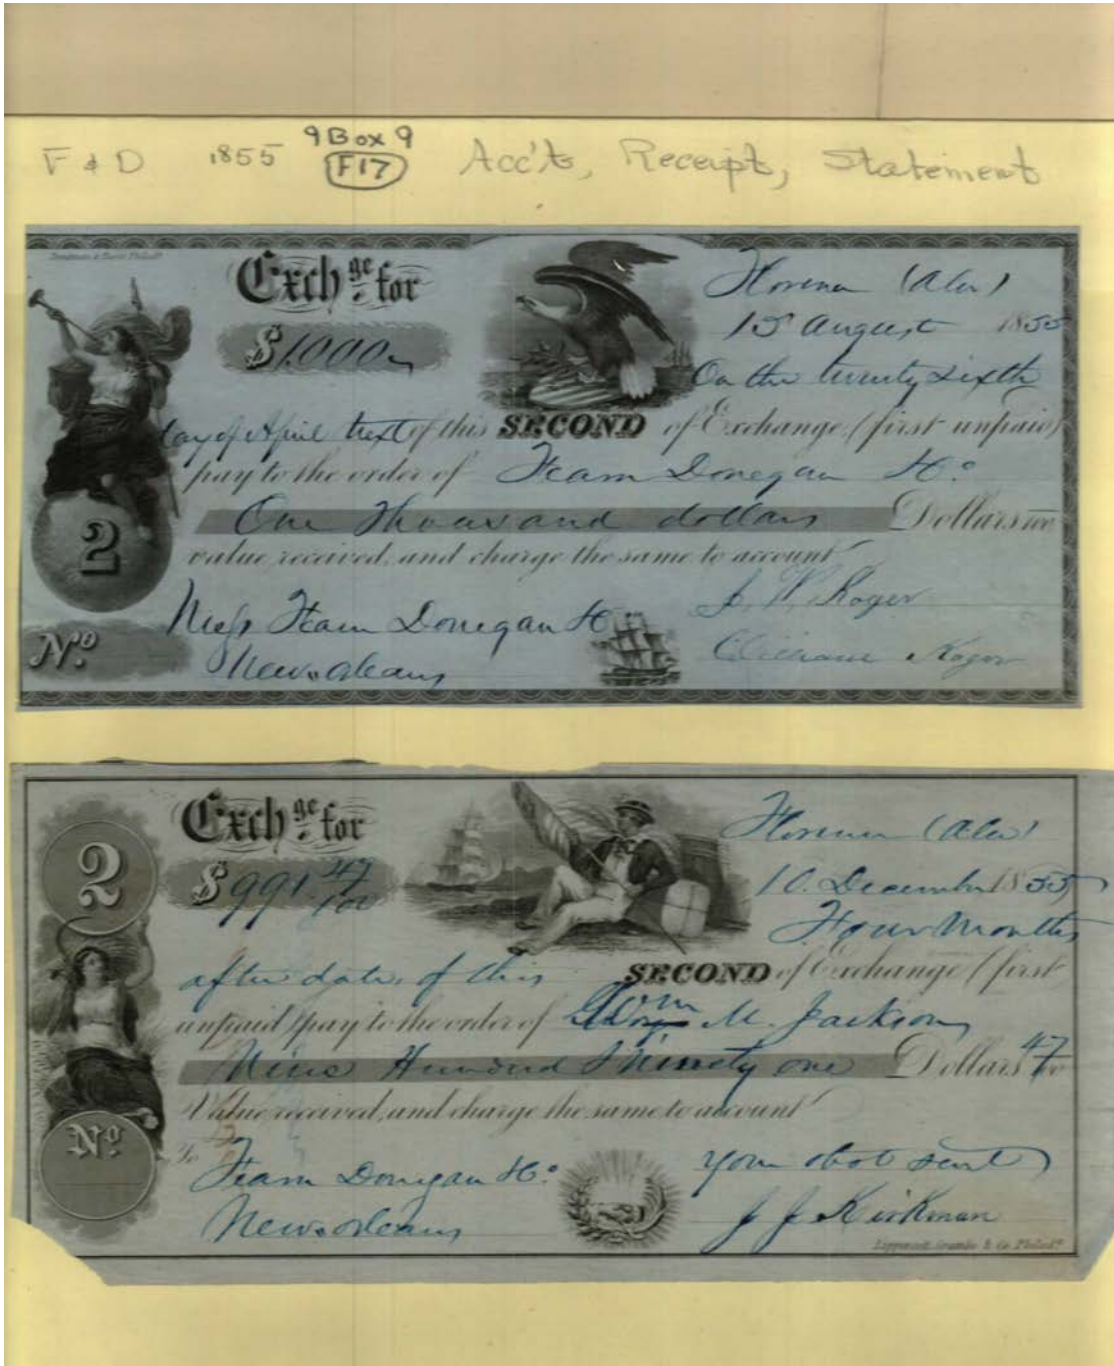 F & D 1855 9 Box 9 Acc't, Receipt, Statement
F17
Exchge for
$1.000
Florence (Ala)
15 August 1855
On the twenty sixth
day of April next of this SECOND of Exchange (first unpaid)
pay to the order of Fearn Donegan & Co
One Thousand dollars Dollars
value received, and charge the same to account
2
Koger
Mess Fearn Donegan & Co
William Koger
No
New orleans
Exchge for
2
$991 47/100
Florence (Ala)
10. December 1855
Four Months
after date, of this SECOND of Exchange (first
unpaid) pay to the order of M. Jackson
Nine Hundred & Ninety one Dollars 47
Value received, and charge the same to account
No
To
Fearn Donegan & Co
your obot servt
New orleans
J J Kirkman
Lippincott, Grambo & Co. Philada